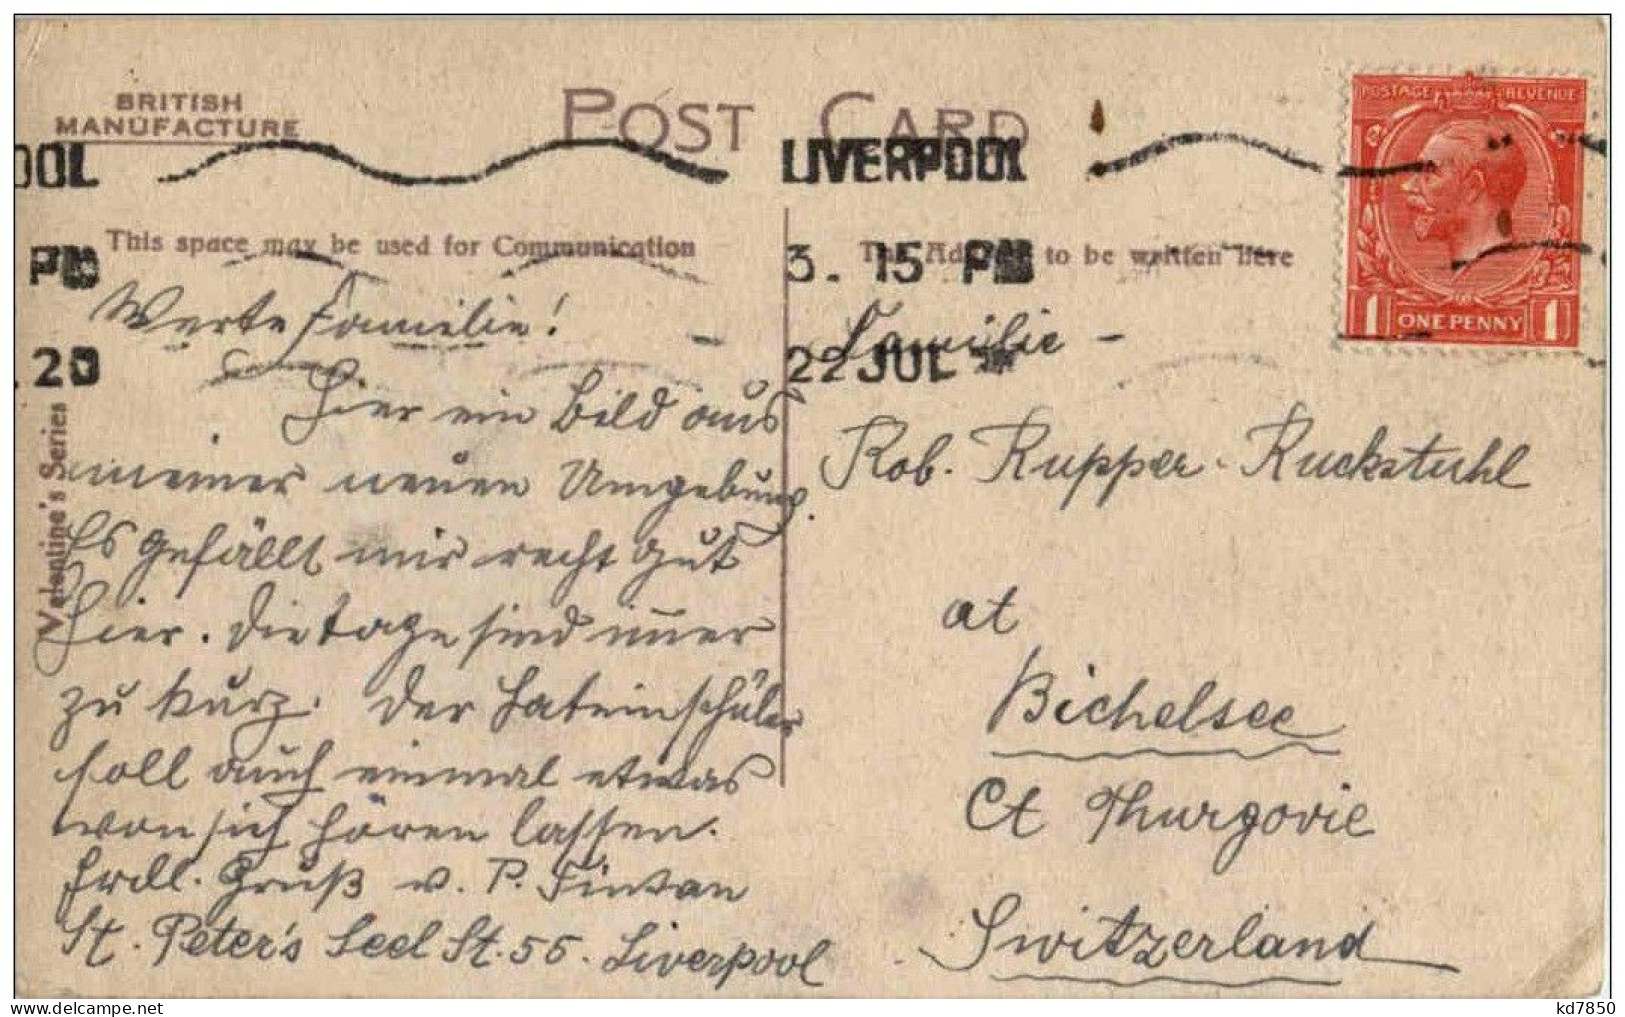 BRITISH
MANUFACTURE
POST CARD
OOL
LIVERPOOL
PM
3. 15 PM
20
22 JUL
POSTAGE REVENUE
1 ONE PENNY 1
This space may be used for Communication
The Address to be written Here
Valentine's Series
Werte Familie!
Hier ein Bild aus
meiner neuen Umgebung.
Es gefällt mir recht gut
hier. Die Tage sind im̅er
zu kurz. Der Lateinschüler
soll auch einmal etwas
von sich hören lassen.
Frdl. Gruß v. P. Fintan
St. Peter's Seel St. 55. Liverpool
Familie -
Rob. Rupper-Ruckstuhl
at
Bichelsee
Ct Thurgovie
Switzerland
kd7850